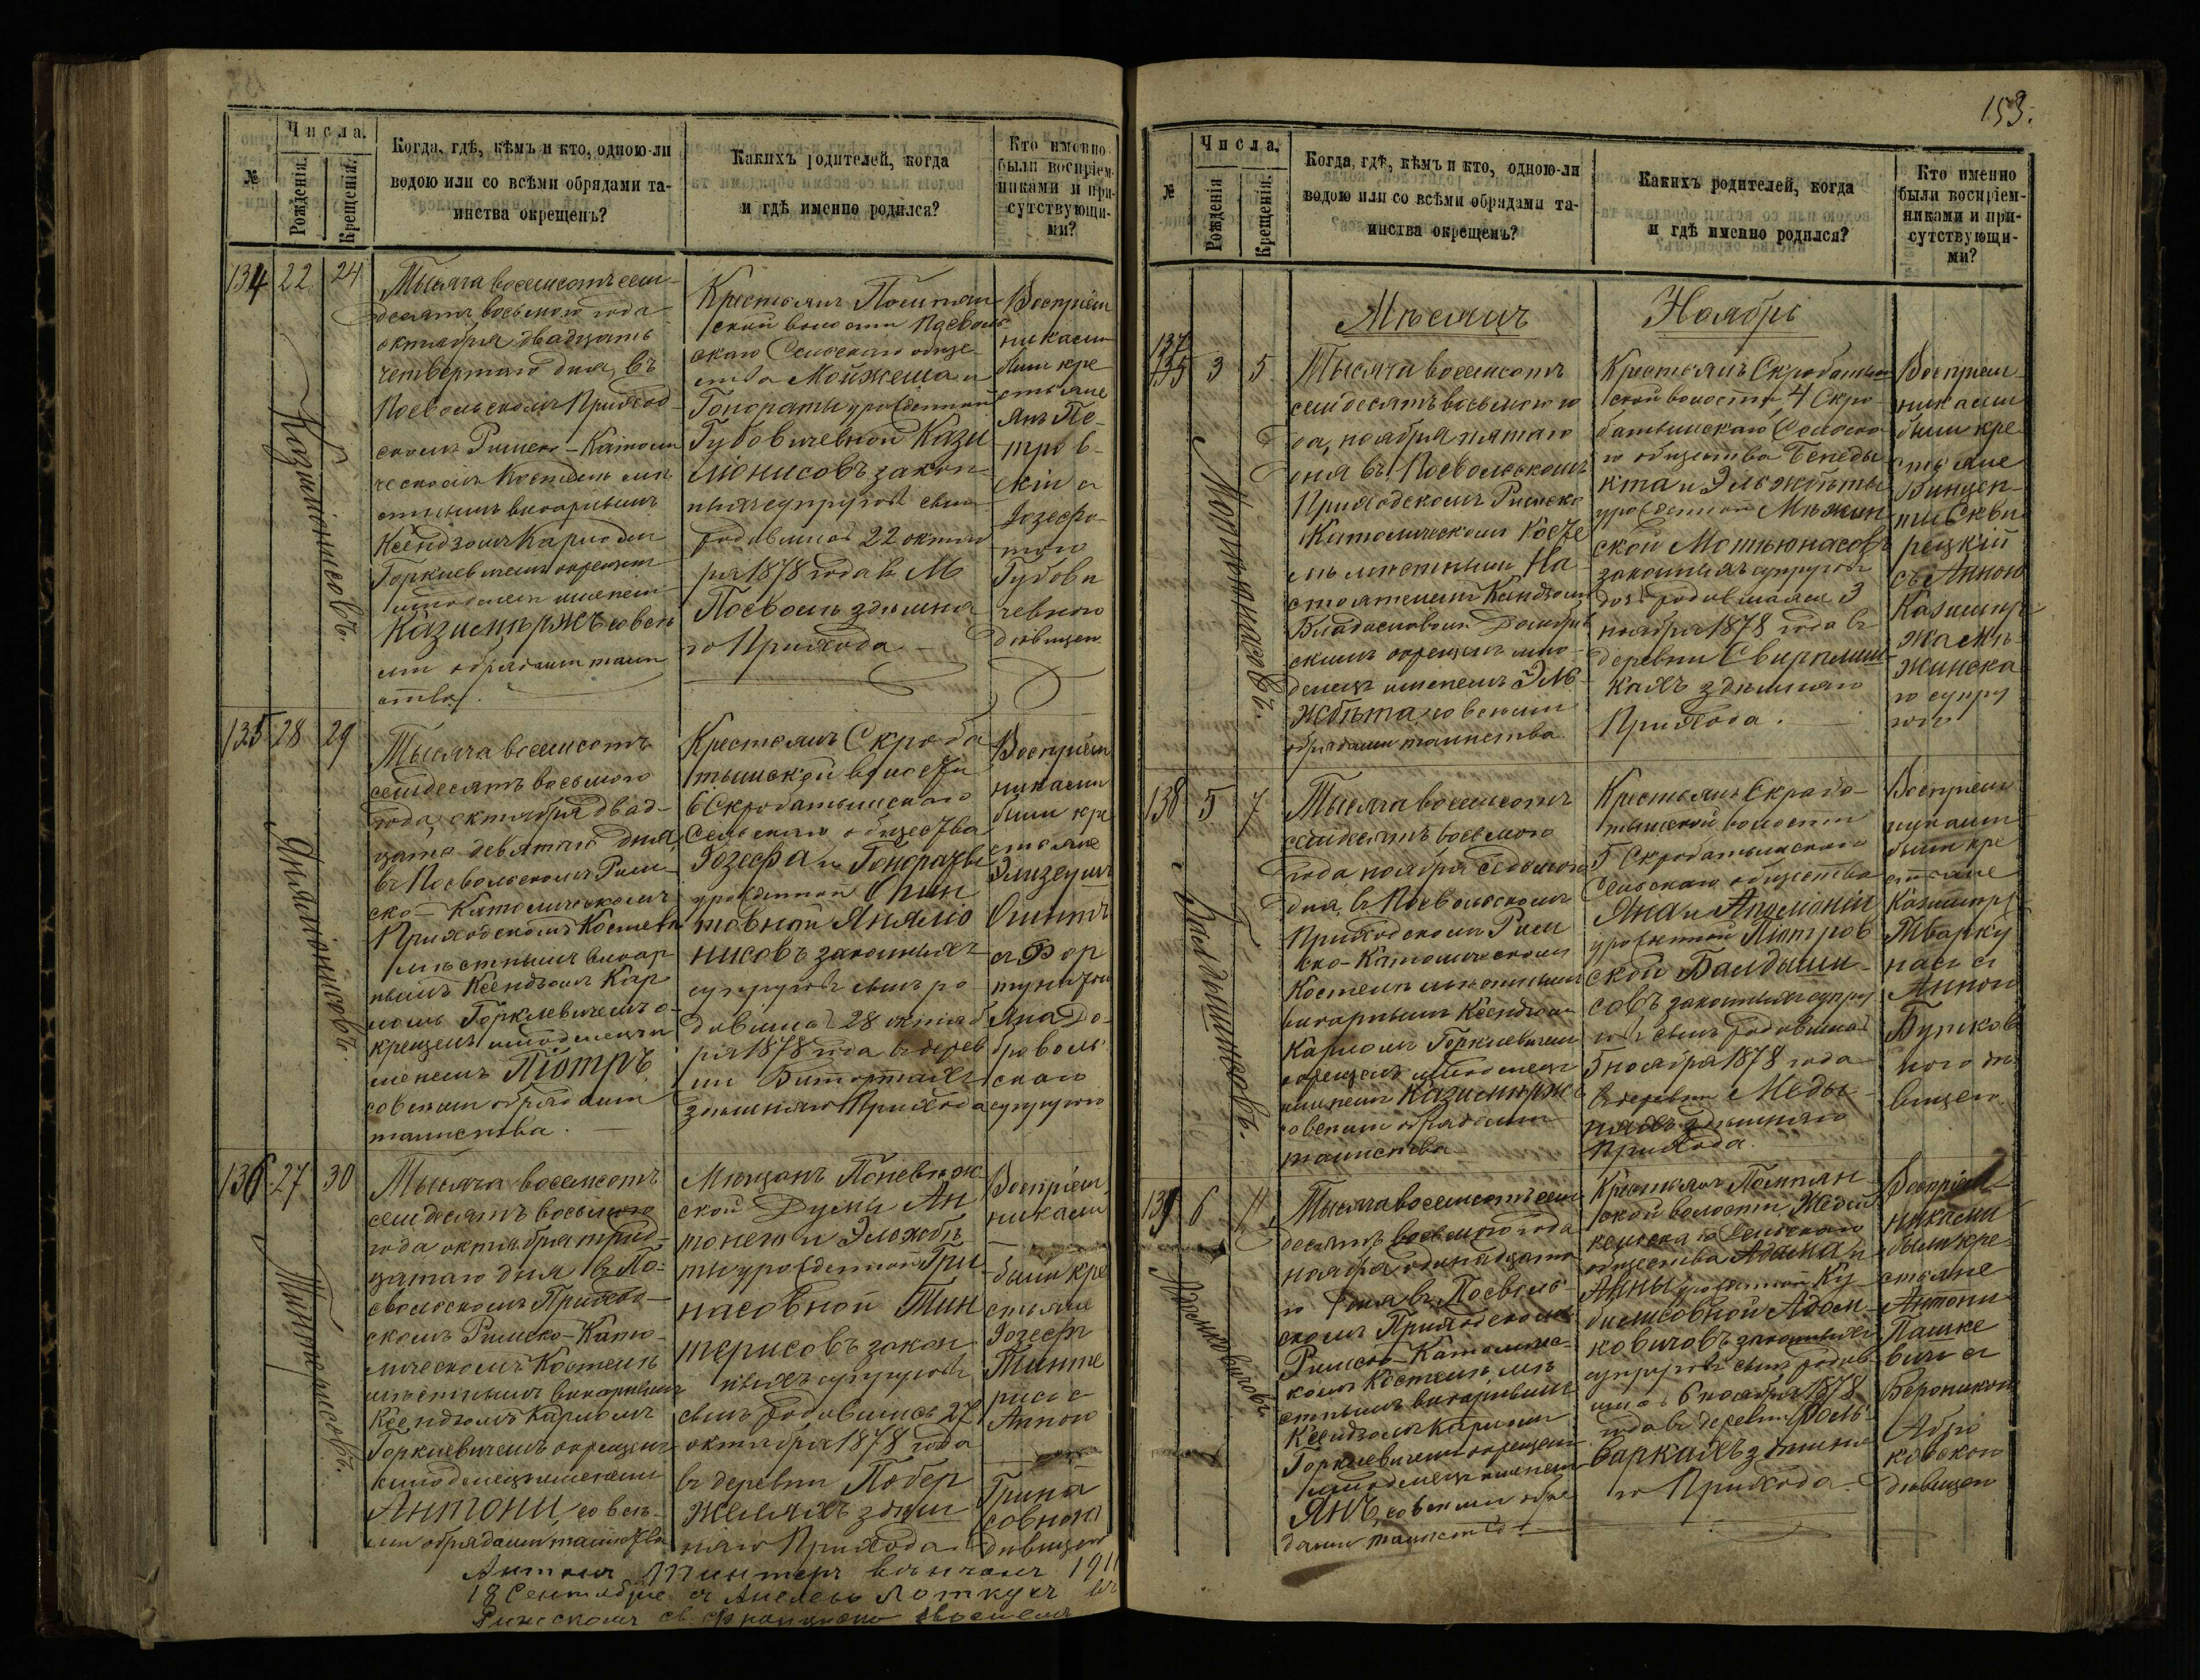 Числа.
№
Рожденія.
Крещенія.
Когда, гдѣ, кѣмъ и кто, одною-ли
водою или со всѣми обрядами та-
инства окрещенъ?
Какихъ родителей, когда
и гдѣ именно родился?
Кто именно
были воспріем-
никами и при-
сутствующи-
ми?
134 22 24
Казимiонисовъ.
Тысяча восемсотъ семь-
десятъ восьмого года
октября двадцать
четвертаго дня, въ
Посвольскомъ Приход-
скомъ Римско-Католи
ческомъ Костелѣ мѣ
стнымъ викарнымъ
Ксендзомъ Карломъ
Горкевичемъ окрещенъ
младенецъ именем
Казимиржъ со всѣ
ми обрядами таин
ства.
Крестьянъ
ской волости
скаго Сельскаго обще-
ства Мойжеша и
Гонораты урожденной
Губовичевной Кази
мiонисовъ закон-
ныхъ супруговъ сынъ
родившiйся 22 октяб
ря 1878 года в М
Посволь здѣшня
го Прихода.
Воспрiем
никами
были кре
стьяне
Янъ Пе-
тров-
скiй с
Iозефа-
тою
Губови
чевною
дѣвицею.
135 28 29
Янялiонисовъ.
Тысяча восемсотъ
семдесятъ восьмого
года, октября двад-
цать девятаго дня,
въ Посвольскомъ Рим-
ско-Католическомъ
Приходскомъ Костелѣ
мѣстнымъ викар
нымъ Ксендзомъ Кар
ломъ Горкевичемъ о-
крещенъ младенецъ и
менемъ Пiотръ
со всѣми обрядами
таинства.
Крестьянъ Скроба
тышской волости
6 Скробатышскаго
Сельскаго общества
Iозефа и Гонораты
урожденной
Янялiо
нисовъ законныхъ
супруговъ сынъ ро-
дившiйся 28 октяб
ря 1878 года в дерев
ни
здѣшняго Прихода
Воспрiем
никами
были кре
стьяне
с Фор
тунатою
Яна До-
броволь
скаго
супругою
136 27 30
Тинтерисовъ.
Тысяча восемсотъ
семдесятъ восьмого
года октября трид-
цатаго дня, въ По-
свольскомъ Приход-
скомъ Римско-Като-
лическомъ Костелѣ
мѣстнымъ викарнымъ
Ксендзомъ Карломъ
Горкевичемъ окрещенъ
младенецъ именемъ
Антони, со всѣ-
ми обрядами таинства
Мѣщанъ Поневѣж
ской Думы Ан
тонего и Эльжбѣ
ты урожденной Гри
насовной Тин
терисовъ закон
ныхъ супруговъ
сынъ родившiйся 27
октября 1878 года
в деревни Побер
желяхъ здѣш
няго Прихода
Воспрiем
никами
были кре
стьяне
Iозефъ
Тинте
рисъ с
Анною
Грина
совною
дѣвицею
Антонъ Тинтеръ вѣнчанъ 191
18 Сентября съ Анелею Лоткусъ въ
Рижскомъ св. Франциска костелѣ
153.
Числа.
№
Рожденія
Крещенія.
Когда, гдѣ, кѣмъ и кто, одною-ли
водою или со всѣми обрядами та-
инства окрещенъ?
Какихъ родителей, когда
и гдѣ именно родился?
Кто именно
были воспріем-
никами и при-
сутствующи-
ми?
Мѣсяцъ Ноябрь
137
135 3 5
Мотьюнасовъ.
Тысяча восемсотъ
семдесятъ восьмого го
да, ноября пятаго
дня въ Посвольскомъ
Приходскомъ Римско
Католическомъ Косте
лѣ мѣстнымъ На-
стоятелемъ Ксендзомъ
Владиславомъ Домбров
скимъ окрещенъ мла-
денецъ именемъ Эль
жбѣта, со всѣми
обрядами таинства.
Крестьянъ Скробатыш
ской волости 4 Скро-
батышскаго Сельска
го общества Бенеды
кта и Эльжбѣты
урожденной Мѣжин
ской Мотьюнасовъ
законныхъ супруговъ
дочь родившаяся 3
ноября 1878 года въ
деревни Свирплиш
кахъ здѣшняго
Прихода.
Воспрiем
никами
были кре
стьяне
Винцен-
тiй Скви
рецкiй
съ Анною
Казимир
жа Мѣ-
жинска
го супру
гою
138 5 7
Балдышисовъ.
Тысяча восемсотъ
семдесятъ восьмого
года ноября седьмого
дня, въ Посвольскомъ
Приходскомъ Рим
ско-Католическомъ
Костелѣ мѣстнымъ
викарнымъ Ксендзом
Карломъ Горкевичемъ
окрещенъ младенецъ
именемъ Казимиржъ
со всѣми обрядами
таинства
Крестьянъ Скроба-
тышской волости
5 Скробатышскаго
Сельскаго общества
Яна и Аполонiи
урожденной Пiотров
ской Балдыши-
совъ законныхъ супру
говъ сынъ родившiйся
5 ноября 1878 года
в деревни Меды-
няхъ здѣшняго
Прихода.
Воспрiем
никами
были кре
стьяне
Казимиръ
Тварку
насъ с
Анною
Бутков
ного дѣ
вицею
139 6 11
Адомковичовъ
Тысяча восемсотъ сем
десятъ восьмого года
ноября одинадцата
го дня, въ Посволь-
скомъ Приходскомъ
Римско-Католичес-
комъ Костелѣ, мѣ
стнымъ викарнымъ
Ксендзомъ Карломъ
Горкевичемъ окрещенъ
младенецъ именем
Янъ, со всѣми обря
дами таинства
Крестьянъ
ской волости
Сельскаго
общества Адама и
Анны урожденной Ку-
билисовной Адом-
ковичовъ законныхъ
супруговъ сынъ родив-
шiйся 6 ноября 1878
года в деревни
баркахъ здѣшня
го Прихода.
Воспрiем
никами
были кре
стьяне
Антони
Пашке
вичъ с
Вероникою
ковскою
дѣвицею